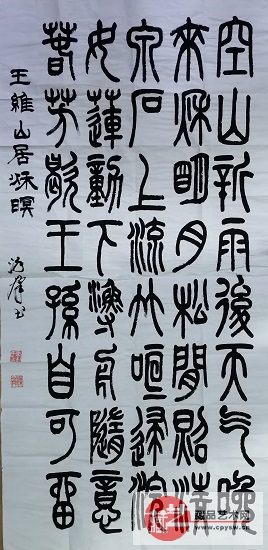 空山新雨後天气晚
來秋明月松間照清
泉石上流竹喧歸浣
女蓮動下漁舟隨意
春芳歇王孫自可留
王維山居秋暝
藏品艺术网
www.cpysw.com